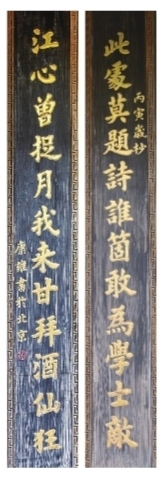 丙寅歲杪
此處莫題詩誰箇敢為學士敵
江心曾捉月我来甘拜酒仙狂
康雍書於北京